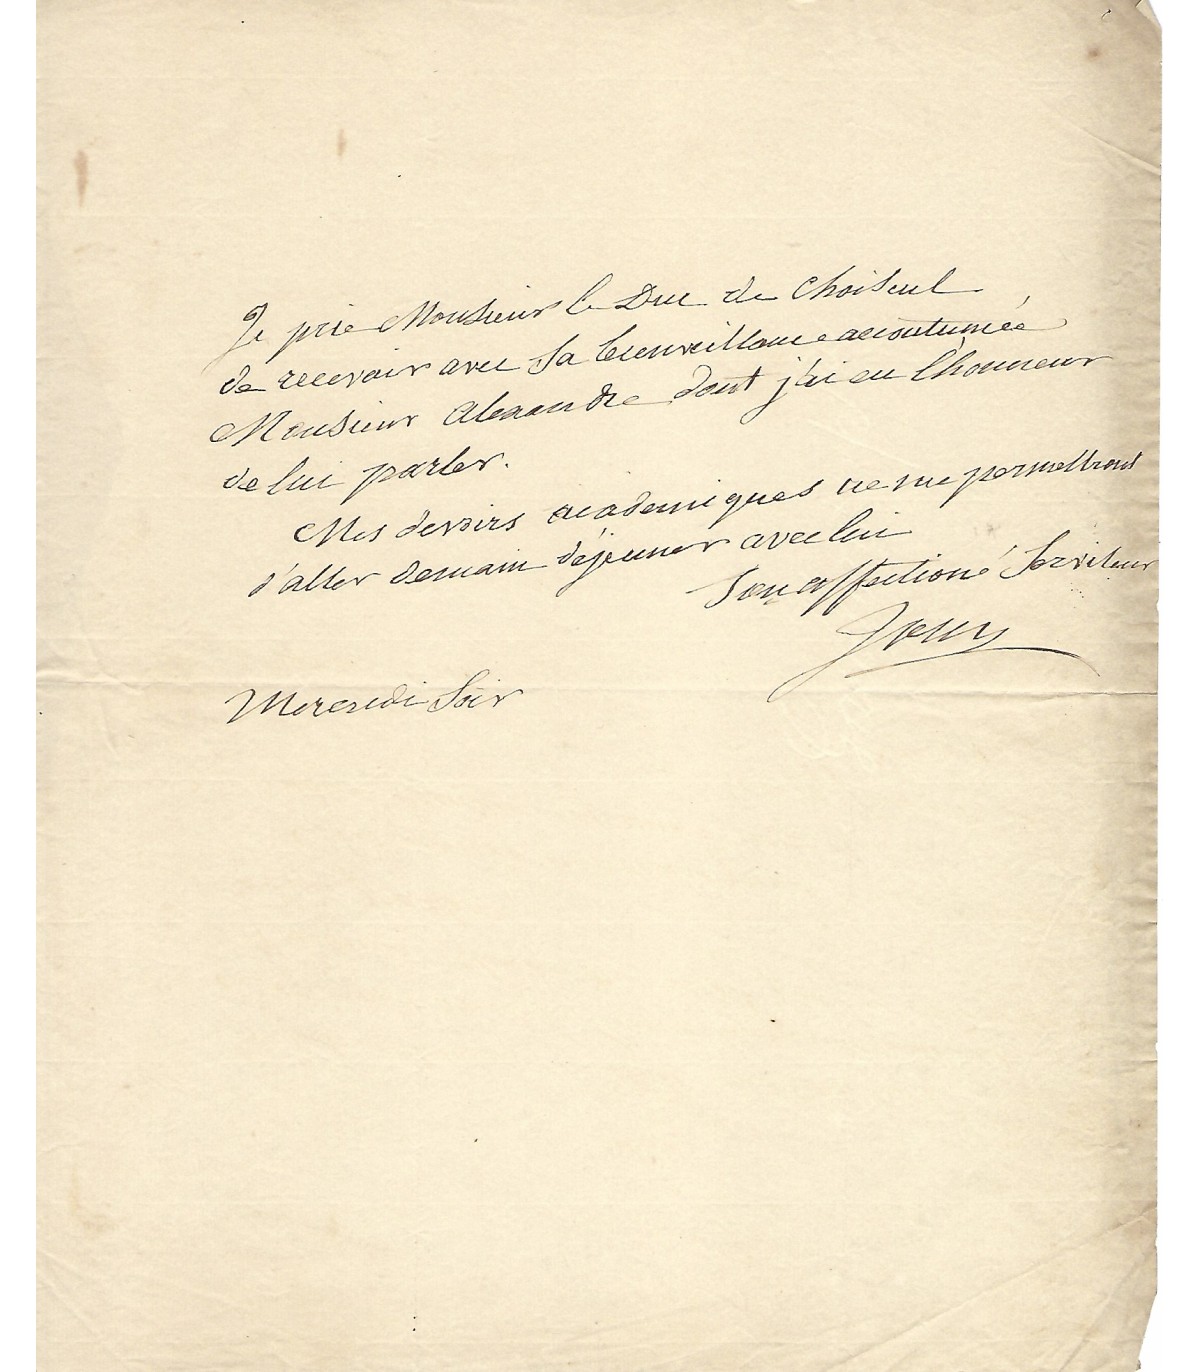 Je prie Monsieur le Duc de Choiseul
de recevoir avec sa bienveillance accoutumée
Monsieur Alexandre dont j'ai eu l'honneur
de lui parler.
Mes devoirs académiques ne me permettront
d'aller demain déjeuner avec lui
Son affectioné Serviteur
Jouy
Mercredi Soir